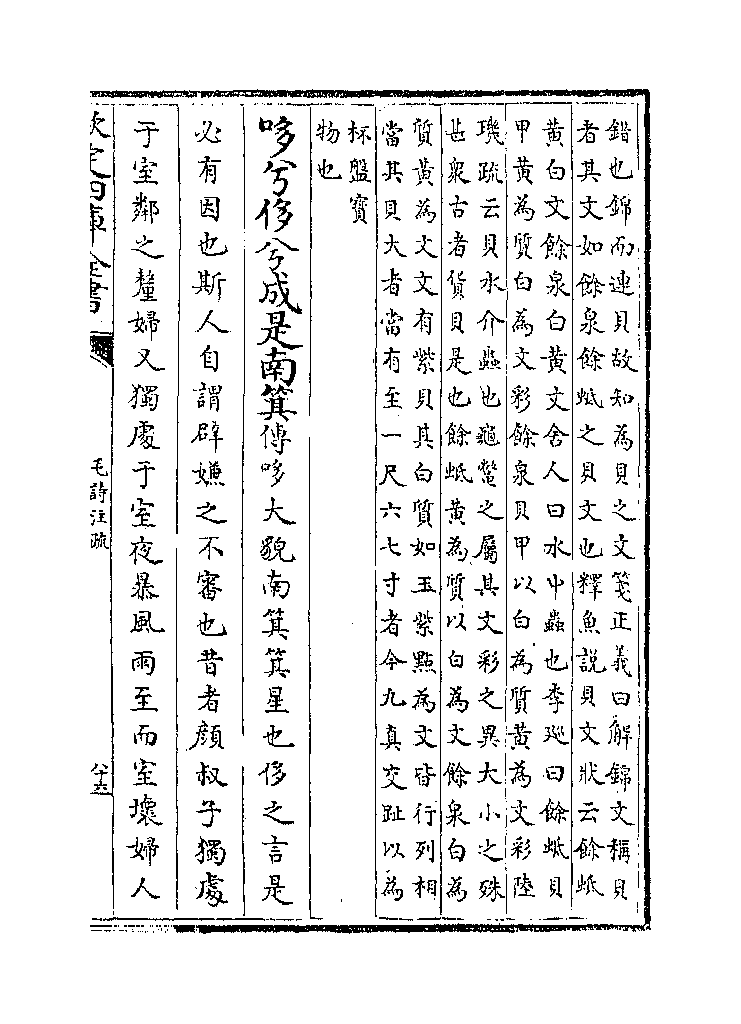 錯也錦而連貝故知為貝之文箋正義曰解錦文稱貝
者其文如餘泉餘蚳之貝文也釋魚説貝文狀云餘蚳
黄白文餘泉白黄文舍人曰水中蟲也李廵曰餘蚳貝
甲黄為質白為文彩餘泉貝甲以白為質黄為文彩陸
璣疏云貝水介蟲也龜鼈之屬其文彩之異大小之殊
甚衆古者貨貝是也餘蚳黄為質以白為文餘泉白為
質黄為文又有紫貝其白質如玉紫點為文皆行列相
當其貝大者當有至一尺六七寸者今九真交趾以為
杯盤寳
物也
哆兮侈兮成是南箕傳哆大貌南箕箕星也侈之言是
必有因也斯人自謂辟嫌之不審也昔者顔叔子獨處
于室鄰之釐婦又獨處于室夜暴風雨至而室壞婦人
欽定四庫全書
毛詩注疏
八十六